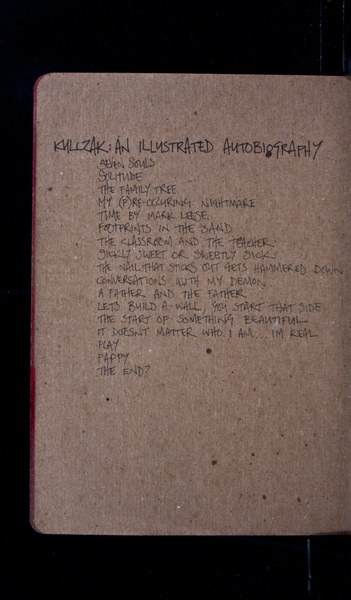 KULCZAK: AN ILLUSTRATED AUTOBIOGRAPHY
SEVEN SOULS
SOLITUDE
THE FAMILY TREE
MY (P)RE-OCCURING NIGHTMARE
TIME BY MARK LEESE
FOOTPRINTS IN THE SAND
THE CLASSROOM AND THE TEACHER
SICKLY SWEET OR SWEETLY SICK
THE NAIL THAT STICKS OUT GETS HAMMERED DOWN
CONVERSATIONS WITH MY DEMON
A FATHER AND THE FATHER
LETS BUILD A WALL, YOU START THAT SIDE
THE START OF SOMETHING BEAUTIFUL
IT DOESNT MATTER WHO I AM... I'M REAL
PLAY
PAPPY
THE END?